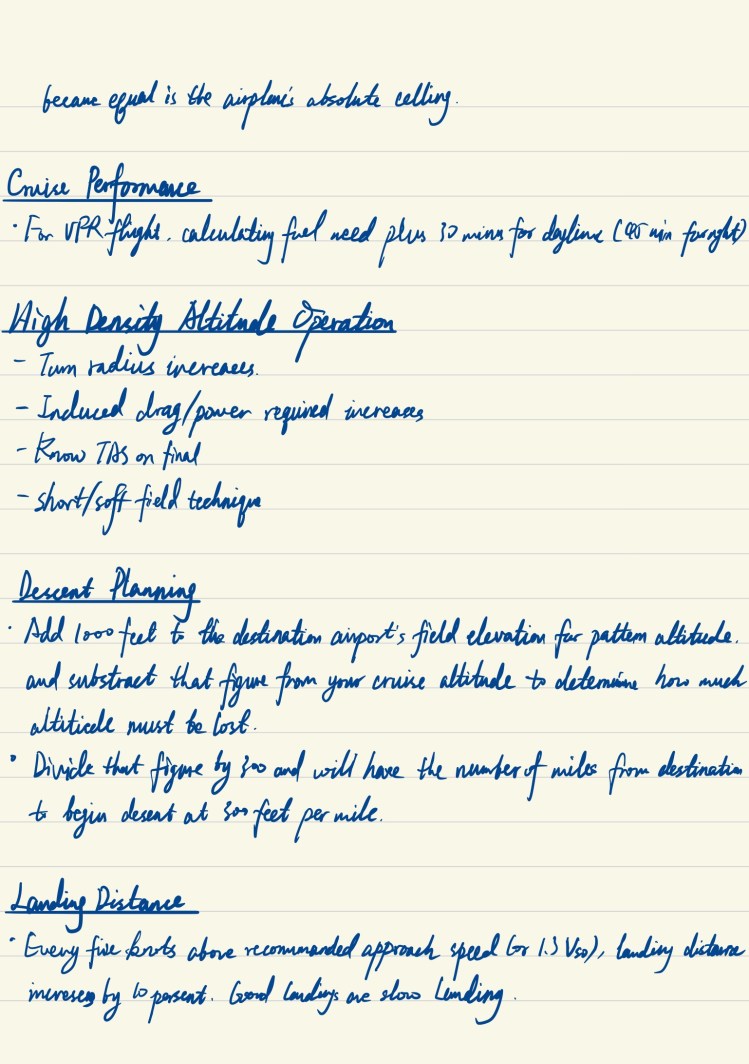 became equal is the airplane's absolute celling.
Cruise Performance
· For VFR flight. calculating fuel need plus 30 mins for daytime (45 min for night)
High Density Altitude Operation
- Turn radius increases.
- Induced drag/power required increases
- Know TAS on final
- short/soft field technique
Descent Planning
· Add 1000 feet to the destination airport's field elevation for pattern altitude.
and substract that figure from your cruise altitude to determine how much
altitude must be lost.
· Divide that figure by 300 and will have the number of miles from destination
to begin desent at 300 feet per mile.
Landing Distance
· Every five knots above recommanded approach speed (or 1.3 Vso), landing distance
increases by 10 persent. Good landings are slow landing.